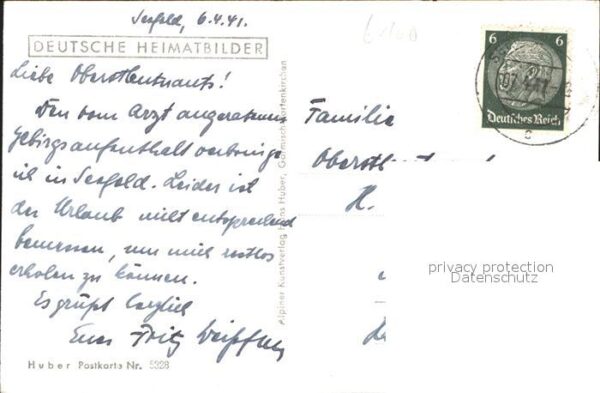 Seefeld, 6.4.41.
DEUTSCHE HEIMATBILDER
Liebe Oberstleutnants!
Den vom Arzt angeratenen
Gebirgsaufenthalt verbringe
ich in Seefeld. Leider ist
der Urlaub nicht entsprechend
bemessen, um mich restlos
erholen zu können.
Es grüßt herzlich
Euer Fritz
Huber Postkarte Nr. 5328
Alpiner Kunstverlag Hans Huber, Garmisch-Partenkirchen
6 6
Deutsches Reich
Familie
Oberstl
H.
privacy protection
Datenschutz